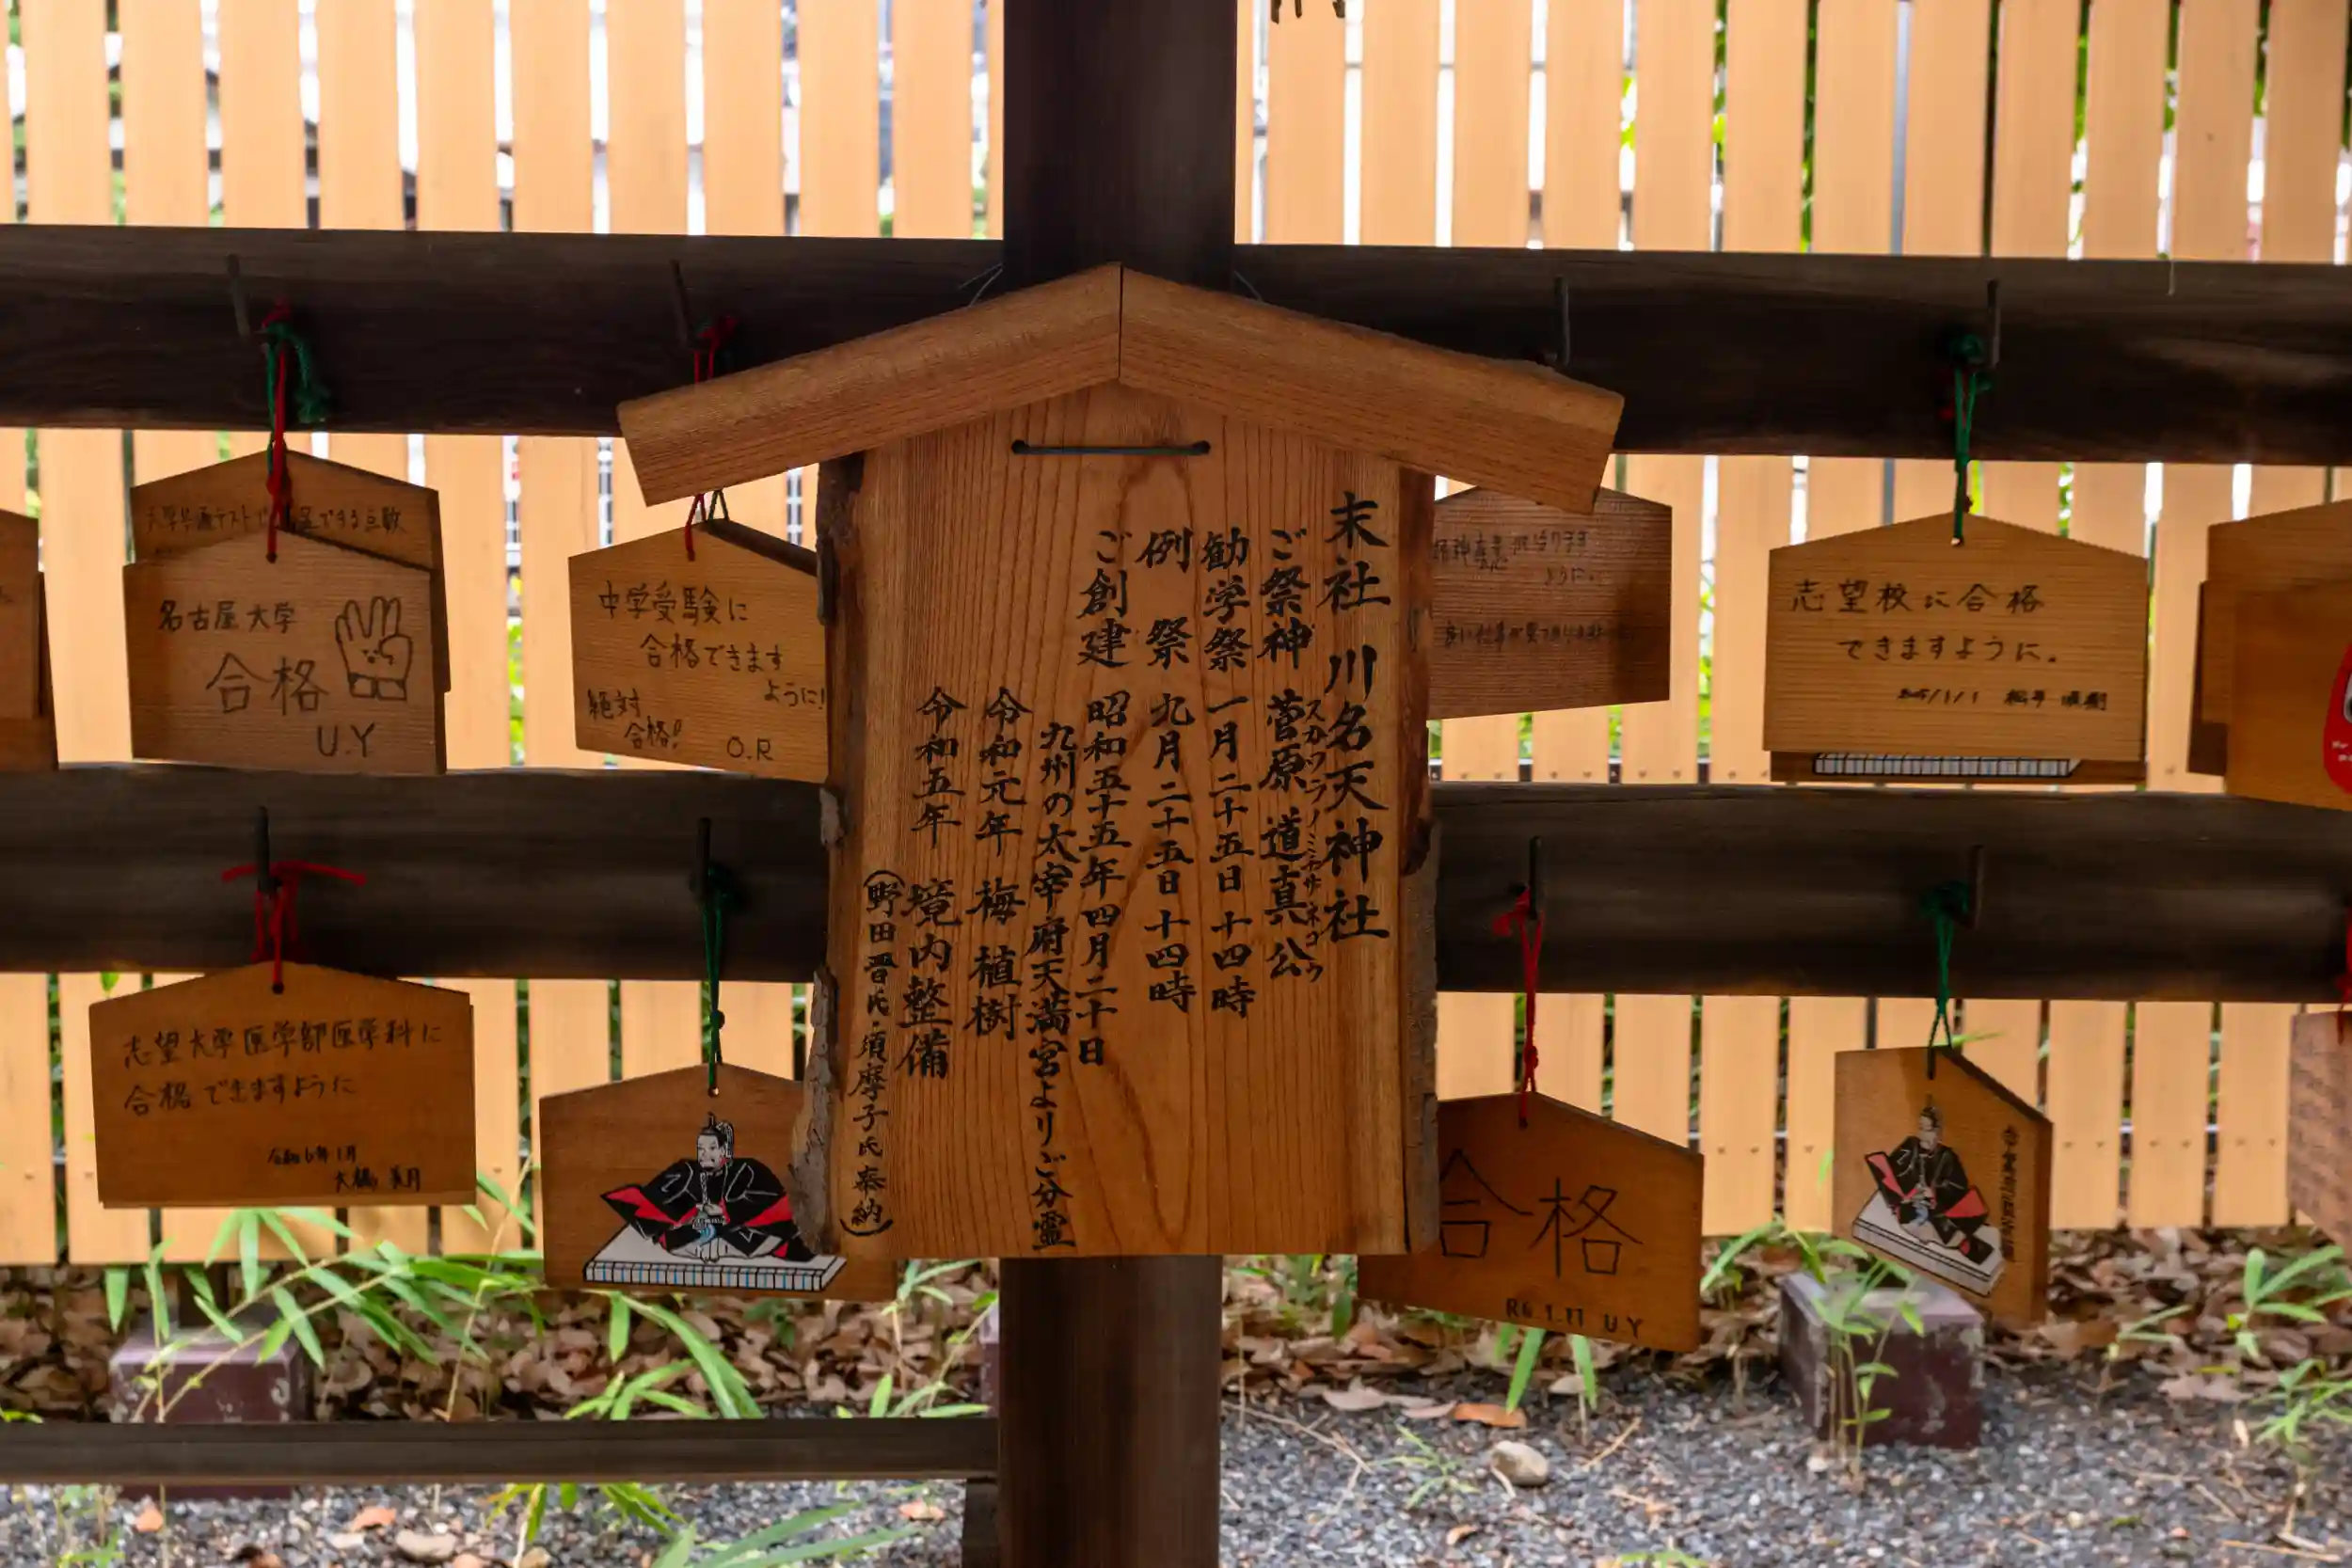 末社 川名天神社
ご祭神 菅原 道真 公
スガワラノミチサネコウ
勧学祭 一月二十五日 十四時
例 祭 九月二十五日 十四時
ご創建 昭和五十五年四月二十日
九州の太宰府天満宮よりご分霊
令和元年 梅 植樹
令和五年 境内整備
(野田晋氏・須摩子氏奉納)
名古屋大学
合格
U.Y
中学受験に
合格できます
ように!
絶対
合格!!
O.R
志望校に合格
できますように。
志望大学医学部医学科に
合格できますように
令和6年1月
合格
R6 1.11 U Y